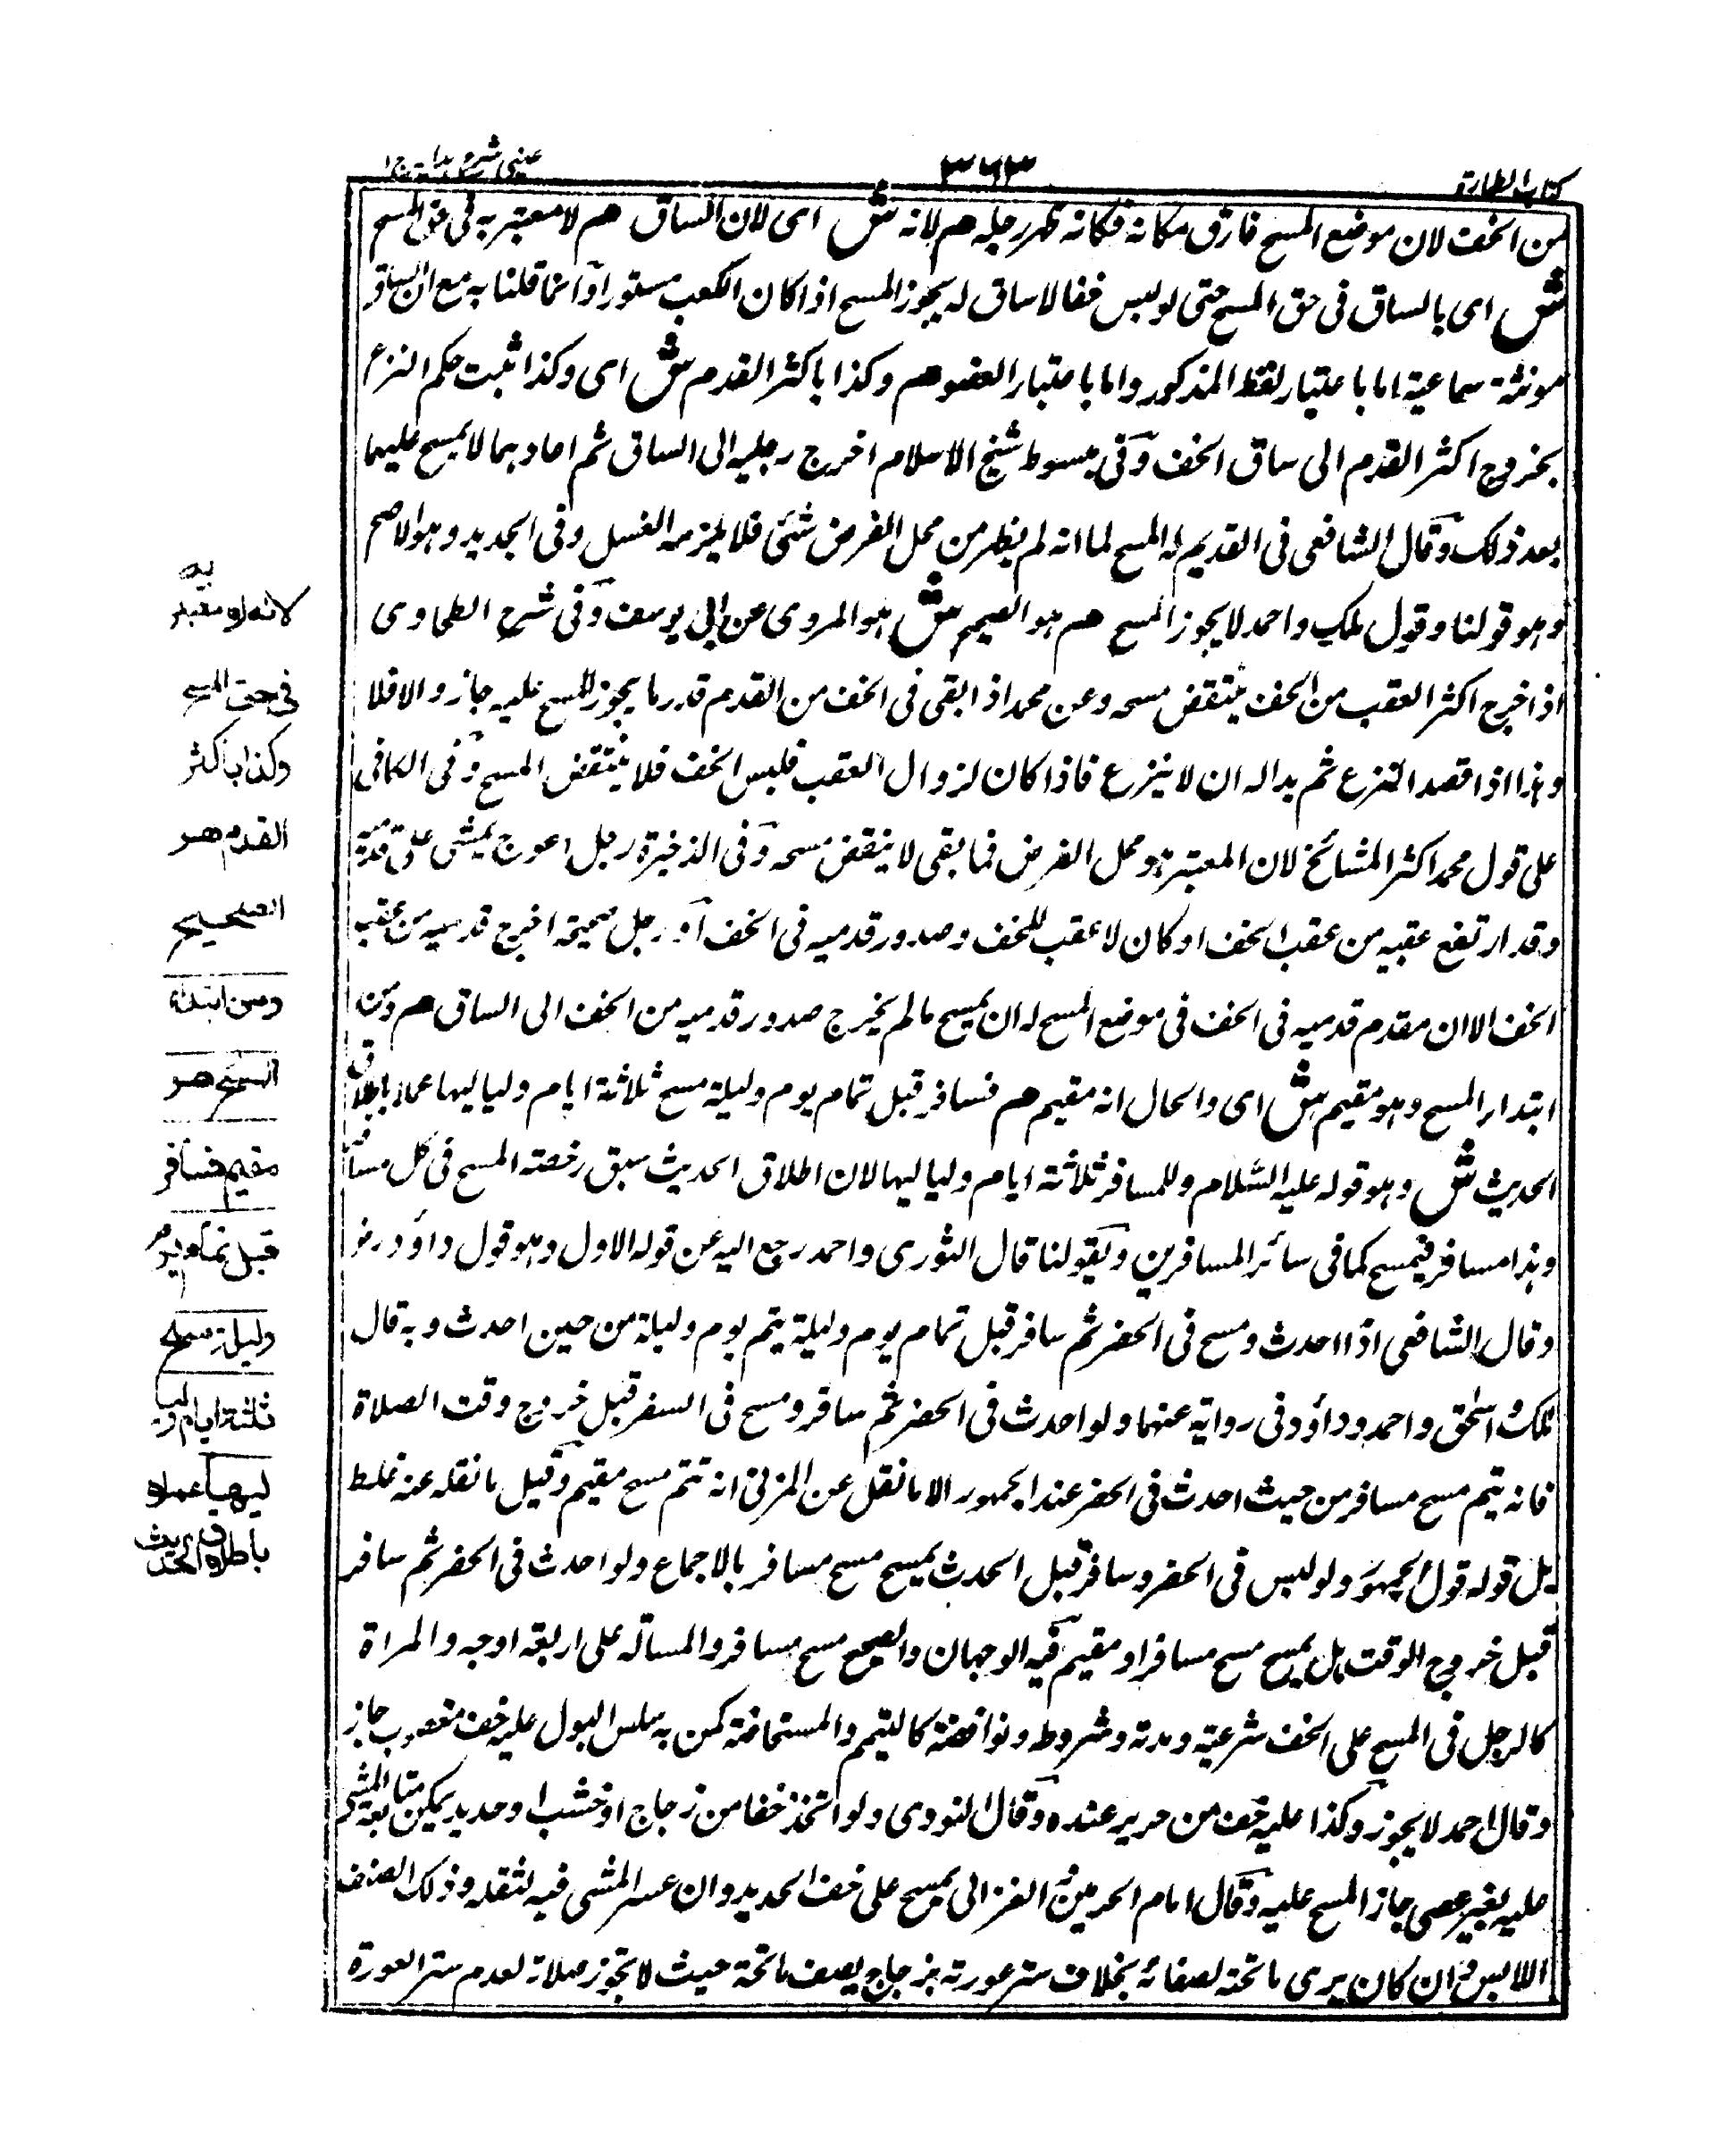 كتاب الطهارة
٣٦٣
عينى شرح هداية ج ١
من الخف لان موضع المسح فارق مكانه فكانه ظهر رجله هم لانه ش اى لان الساق هم لا معتبر به فى حق المسح
ش اى بالساق فى حق المسح حتى لو لبس خفا لا ساق له يجوز المسح اذا كان الكعب مستورا وانما قلنا به مع ان الساق
مونثة سماعية اما باعتبار لفظ المذكور واما باعتبار العضو هم وكذا باكثر القدم ش اى وكذا ثبت حكم النزع
بخروج اكثر القدم الى ساق الخف وفى مبسوط شيخ الاسلام اخرج رجليه الى الساق ثم اعادهما لا يمسح عليهما
بعد ذلك وقال الشافعى فى القديم له المسح لما انه لم يظهر من محل الفرض شئى فلا يلزمه الغسل وفى الجديد وهو الاصح
وهو قولنا وقول ملك واحمد لا يجوز المسح هم هو الصحيح ش هو المروى عن ابى يوسف وفى شرح الطحاوى
اذا خرج اكثر العقب من الخف ينتقض مسحه وعن محمد اذا بقى فى الخف من القدم قدر ما يجوز المسح عليه جاز والا فلا
وهذا اذا قصد النزع ثم بدا له ان لا ينزع فاذا كان لزوال العقب فلبس الخف فلا ينتقض المسح وفى الكافى
على قول محمد اكثر المشائخ لان المعتبر هو محل الفرض فما بقى لا ينقض مسحه وفى الذخيرة رجل اعوج يمشى على قدميه
وقد ارتفع عقبه من عقب الخف او كان لا عقب للخف وصدور قدميه فى الخف او رجل صحيحة اخرج قدميه من عقب
الخف الا ان مقدم قدميه فى الخف فى موضع المسح له ان يمسح ما لم يخرج صدور قدميه من الخف الى الساق هم ومن
ابتداء المسح وهو مقيم ش اى والحال انه مقيم هم فسافر قبل تمام يوم وليلة مسح ثلاثة ايام ولياليها عملا باطلاق
الحديث ش وهو قوله عليه السلام وللمسافر ثلاثة ايام ولياليها لان اطلاق الحديث سبق رخصته المسح فى كل مسافر
وهذا مسافر فيمسح كما فى سائر المسافرين وبقولنا قال الثورى واحمد رجع اليه عن قوله الاول وهو قول داؤد
وقال الشافعى اذا احدث ومسح فى الحضر ثم سافر قبل تمام يوم وليلة يتم يوم وليلة من حين احدث وبه قال
ملك واسحق واحمد وداؤد فى رواية عنهما ولو احدث فى الحضر ثم سافر ومسح فى السفر قبل خروج وقت الصلاة
فانه يتم مسح مسافر من حيث احدث فى الحضر عند الجمهور الا ما نقل عن المزنى انه تتم مسح مقيم وقيل ما نقله عنه غلط
بل قوله قول الجمهور ولو لبس فى الحضر وسافر قبل الحدث يمسح مسح مسافر بالاجماع ولو احدث فى الحضر ثم سافر
قبل خروج الوقت هل يمسح مسح مسافر او مقيم فيه الوجهان والصحيح مسح مسافر والمسألة على اربعة اوجه والمراة
كالرجل فى المسح على الخف شرعيته ومدته وشروطه ونواقضه كالتيمم والمستحاضة كمن به سلس البول عليه خف مغصوب جاز
وقال احمد لا يجوز وكذا عليه خف من حرير عنده وقال النووى ولو اتخذ خفا من زجاج او خشب او حديد يمكن متابعة المشى
عليه بغير عصى جاز المسح عليه وقال امام الحرمين والغزالى يمسح على خف الحديد وان عسر المشى فيه لثقله وذلك لضعف
اللابس وان كان يرى ما تحته لصفائه بخلاف ستر عورته بزجاج يصف ما تحته حيث لا تجوز صلاته لعدم ستر العورة
لانه لا معتبر به
فى حق المسح
وكذا باكثر
القدم هو
الصحيح
ومن ابتدأ
المسح هو
مقيم فسافر
قبل تمام يوم
وليلة مسح
ثلثة ايام وليا
ليها عملا
باطلاق الحديث